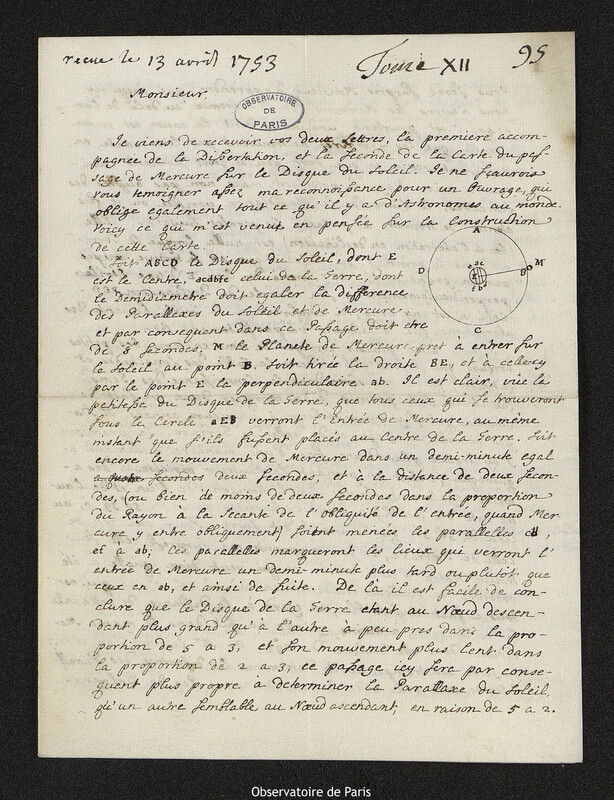 recue le 13 avril 1753
Tome XII
95
Monsieur
OBSERVATOIRE
DE
PARIS
Je viens de recevoir vos deux lettres, la premiere accom-
pagnée de la Dissertation, et la seconde de la Carte du pas-
sage de Mercure sur le Disque du Soleil. Je ne sçaurois
vous temoigner assez ma reconnoissance pour un Ouvrage, qui
oblige egalement tout ce qu'il y a d'Astronomes au monde.
Voicy ce qui m'est venu en pensée sur la construction
de cette Carte
Soit ABCD le Disque du Soleil, dont E
est le Centre, acdbfe celui de la Terre, dont
le Demidiametre doit egaler la difference
des Parallaxes du Soleil et de Mercure,
et par consequent dans ce Passage doit etre
de 8" secondes, M le Planete de Mercure pret à entrer sur
le soleil au point B. Soit tirée la droite BE, et à cellecy
par le point E la perpendiculaire ab. Il est clair, vüe la
petitesse du Disque de la Terre, que tous ceux qui se trouveront
sous le Cercle aEB verront l'Entrée de Mercure, au même
instant que s'ils fussent placés au Centre de la Terre. Soit
encore le mouvement de Mercure dans un demi-minute egal
a quatre secondes deux secondes, et à la distance de deux secon-
des, (ou bien de moins de deux secondes dans la proportion
du Rayon à la secante de l'obliquité de l'entrée, quand Mer-
cure y entre obliquement) soient menées les parallelles cd,
ef à ab; les parallelles marqueront les lieux qui verront l'
entrée de Mercure un demi-minute plus tard ou plutôt que
ceux en ab, et ainsi de suite. De là il est facile de con-
clure que le Disque de la Terre etant au Nœud descen-
dant plus grand qu'à l'autre à peu pres dans la pro-
portion de 5 a 3, et son mouvement plus lent dans
la proportion de 2 a 3, ce passage icy sera par conse-
quent plus propre à determiner la Parallaxe du Soleil,
qu'un autre semblable au Nœud ascendant, en raison de 5 a 2.
A
D
M
B
C
Observatoire de Paris